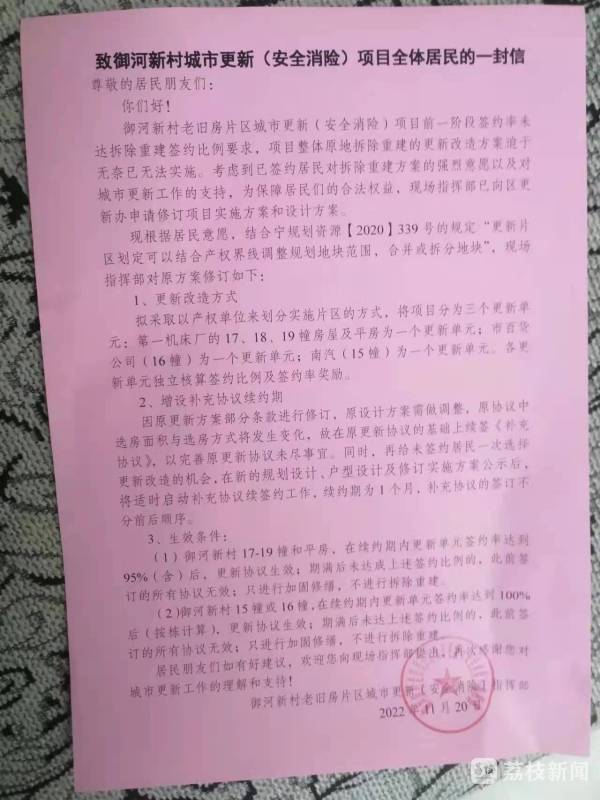 致御河新村城市更新（安全消险）项目全体居民的一封信
尊敬的居民朋友们：
你们好！
御河新村老旧房片区城市更新（安全消险）项目前一阶段签约率未
达拆除重建签约比例要求，项目整体原地拆除重建的更新改造方案迫于
无奈已无法实施。考虑到已签约居民对拆除重建方案的强烈意愿以及对
城市更新工作的支持，为保障居民们的合法权益，现场指挥部已向区更
新办申请修订项目实施方案和设计方案。
现根据居民意愿，结合宁规划资源【2020】339号的规定“更新片
区划定可以结合产权界线调整规划地块范围，合并或拆分地块”，现场
指挥部对原方案修订如下：
1、更新改造方式
拟采取以产权单位来划分实施片区的方式，将项目分为三个更新单
元：第一机床厂的17、18、19幢房屋及平房为一个更新单元；市百货
公司（16幢）为一个更新单元；南汽（15幢）为一个更新单元。各更
新单元独立核算签约比例及签约率奖励。
2、增设补充协议续约期
因原更新方案部分条款进行修订，原设计方案需做调整，原协议中
选房面积与选房方式将发生变化，故在原更新协议的基础上续签《补充
协议》，以完善原更新协议未尽事宜。同时，再给未签约居民一次选择
更新改造的机会，在新的规划设计、户型设计及修订实施方案公示后，
将适时启动补充协议续签约工作，续约期为1个月，补充协议的签订不
分前后顺序。
3、生效条件：
（1）御河新村17-19幢和平房，在续约期内更新单元签约率达到
95%（含）后，更新协议生效；期满后未达成上述签约比例的，此前签
订的所有协议无效；只进行加固修缮，不进行拆除重建。
（2）御河新村15幢或16幢，在续约期内更新单元签约率达到100%
后（按栋计算），更新协议生效；期满后未达到上述签约比例的，此前签
订的所有协议无效；只进行加固修缮，不进行拆除重建。
居民朋友们如有好建议，欢迎您向现场指挥部提出，再次感谢您对
城市更新工作的理解和支持！
御河新村老旧房片区城市更新（安全消险）指挥部
2022年11月20日
荔枝新闻